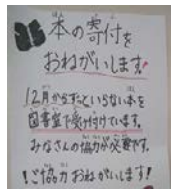 本の寄付を
おねがいします。
12月からずっといらない本を
図書室で受け付けています。
みなさんの協力が必要です。
!ご協力おねがいします!